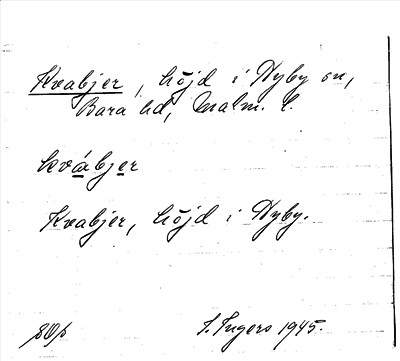 Kvabjer, höjd i Hyby sn,
Bara hd, Malm. l.
kvábjer
Kvabjer, höjd i Hyby.
I. Ingers 1945.